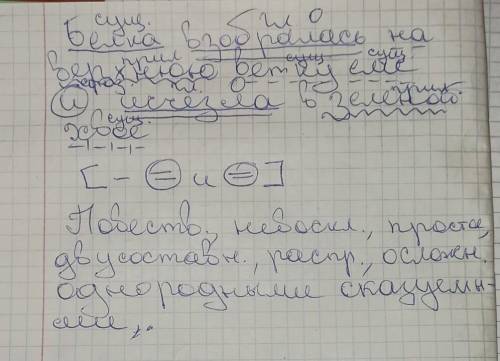 сущ. гл О
Белка взобралась на
прил сущ сущ
верхнюю ветку ели
союз гл. О прил.
и исчезла в зелёной
сущ.
хвое
[ - = и = ]
Повеств., невоскл., простое,
двусоставн., распр., осложн.
однородными сказуемы-
ми,.